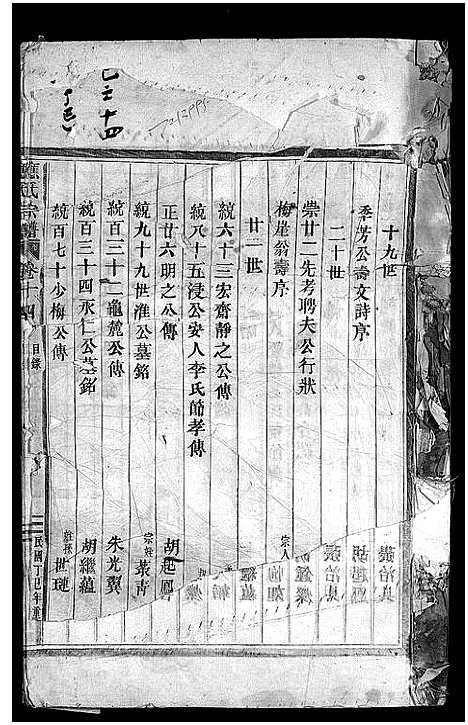 十九世
季芳公壽文詩序
二十世
崇廿二先考聘夫公行狀
梅崖翁壽序 宗人
廿一世
統六十三宏齋靜之公傳
統八十五浸公安人李氏節孝傳
正廿六明之公傳 胡起鳳
統九十九世淮公墓銘 宗姪 叢青
統百三十二龜麓公傳 朱光翼
統百三十四永仁公墓銘 胡繼蘊
統百七十少梅公傳 姪孫 世璉
氏宗譜 卷十四 目錄 民國丁巳年重
十四
丁巳